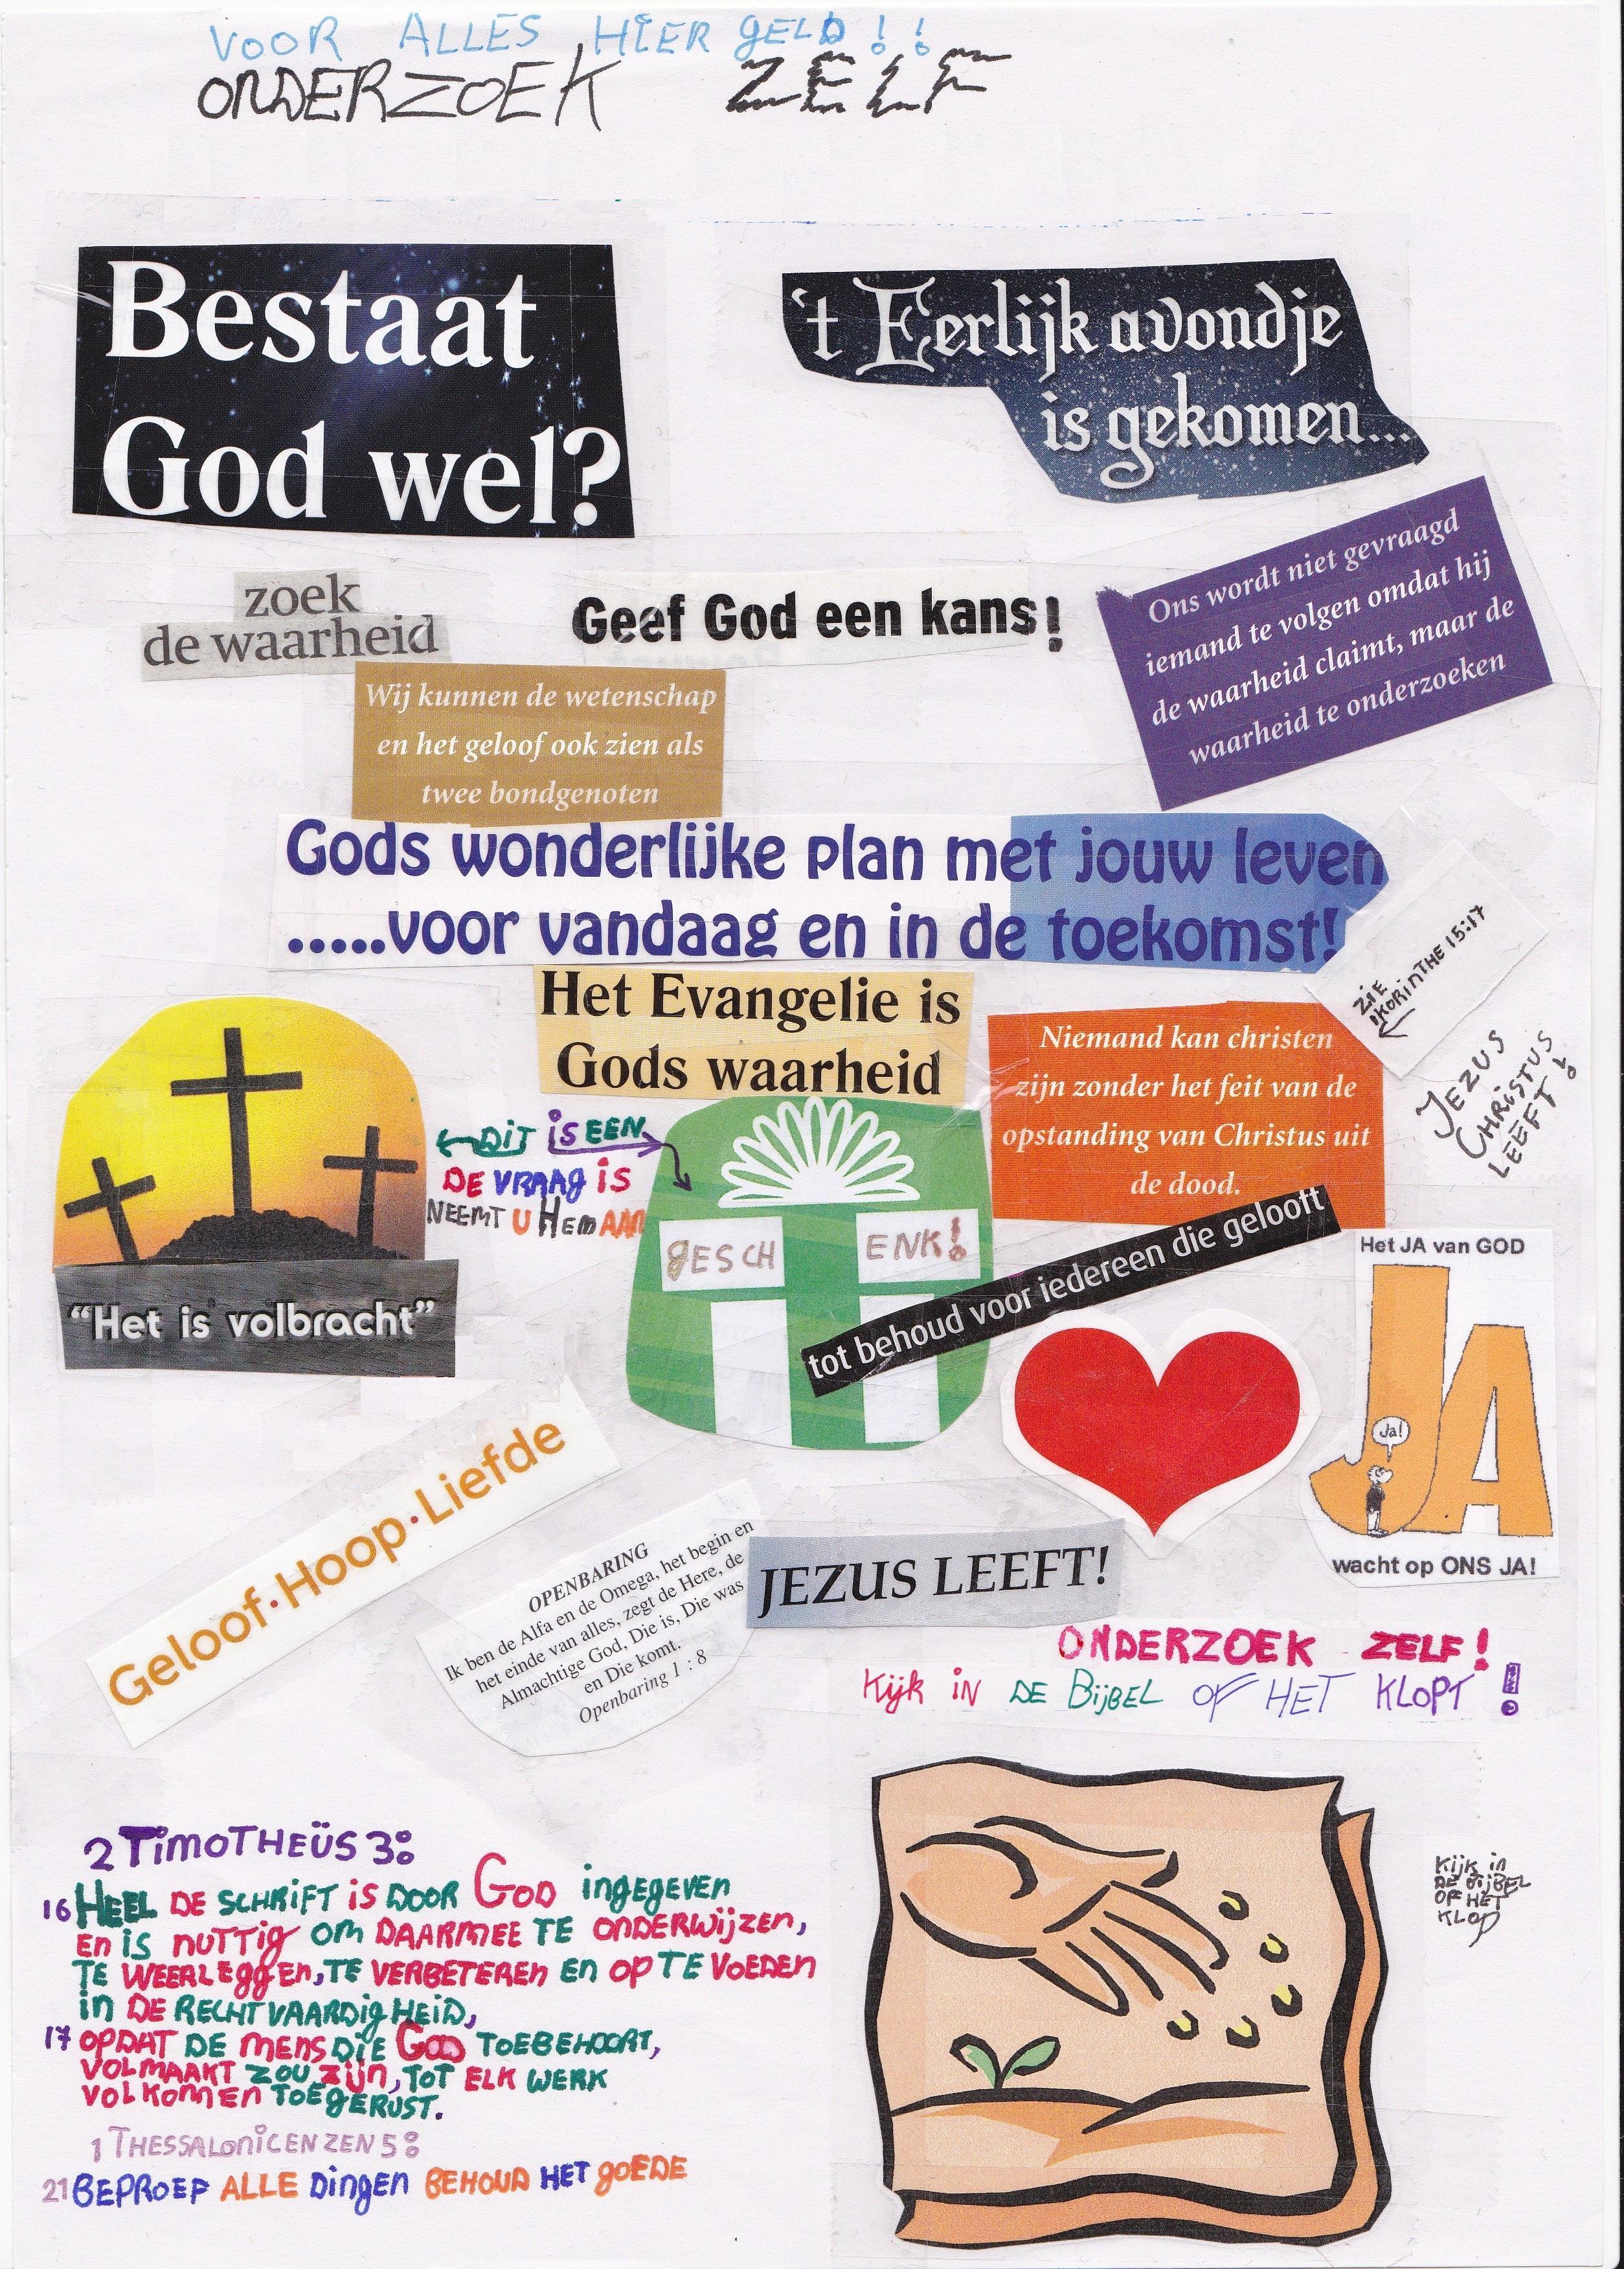 VOOR ALLES HIER GELD!!
ONDERZOEK ZELF
Bestaat
God wel?
't Eerlijk avondje
is gekomen...
zoek
de waarheid
Geef God een kans!
Ons wordt niet gevraagd
iemand te volgen omdat hij
de waarheid claimt, maar de
waarheid te onderzoeken
Wij kunnen de wetenschap
en het geloof ook zien als
twee bondgenoten
Gods wonderlijke plan met jouw leven
.....voor vandaag en in de toekomst!
ZIE
1KORINTHE 15:17
JEZUS
CHRISTUS
LEEFT!
Het Evangelie is
Gods waarheid
Niemand kan christen
zijn zonder het feit van de
opstanding van Christus uit
de dood.
DIT IS EEN
DE VRAAG IS
NEEMT U HEM AAN
GESCHENK!
"Het is volbracht"
tot behoud voor iedereen die gelooft
Het JA van GOD
JA
Ja!
wacht op ONS JA!
Geloof·Hoop·Liefde
OPENBARING
Ik ben de Alfa en de Omega, het begin en
het einde van alles, zegt de Here, de
Almachtige God, Die is, Die was
en Die komt.
Openbaring 1 : 8
JEZUS LEEFT!
ONDERZOEK ZELF!
Kijk IN DE BIJBEL OF HET KLOPT!
2 TIMOTHEÜS 3:
16 HEEL DE SCHRIFT IS DOOR GOD INGEGEVEN
EN IS NUTTIG OM DAARMEE TE ONDERWIJZEN,
TE WEERLEGGEN, TE VERBETEREN EN OP TE VOEDEN
IN DE RECHTVAARDIGHEID,
17 OPDAT DE MENS DIE GOD TOEBEHOORT,
VOLMAAKT ZOU ZIJN, TOT ELK WERK
VOLKOMEN TOEGERUST.
1 THESSALONICENZEN 5:
21 BEPROEF ALLE DINGEN BEHOUD HET GOEDE
KIJK IN
DE BIJBEL
OF HET
KLOP